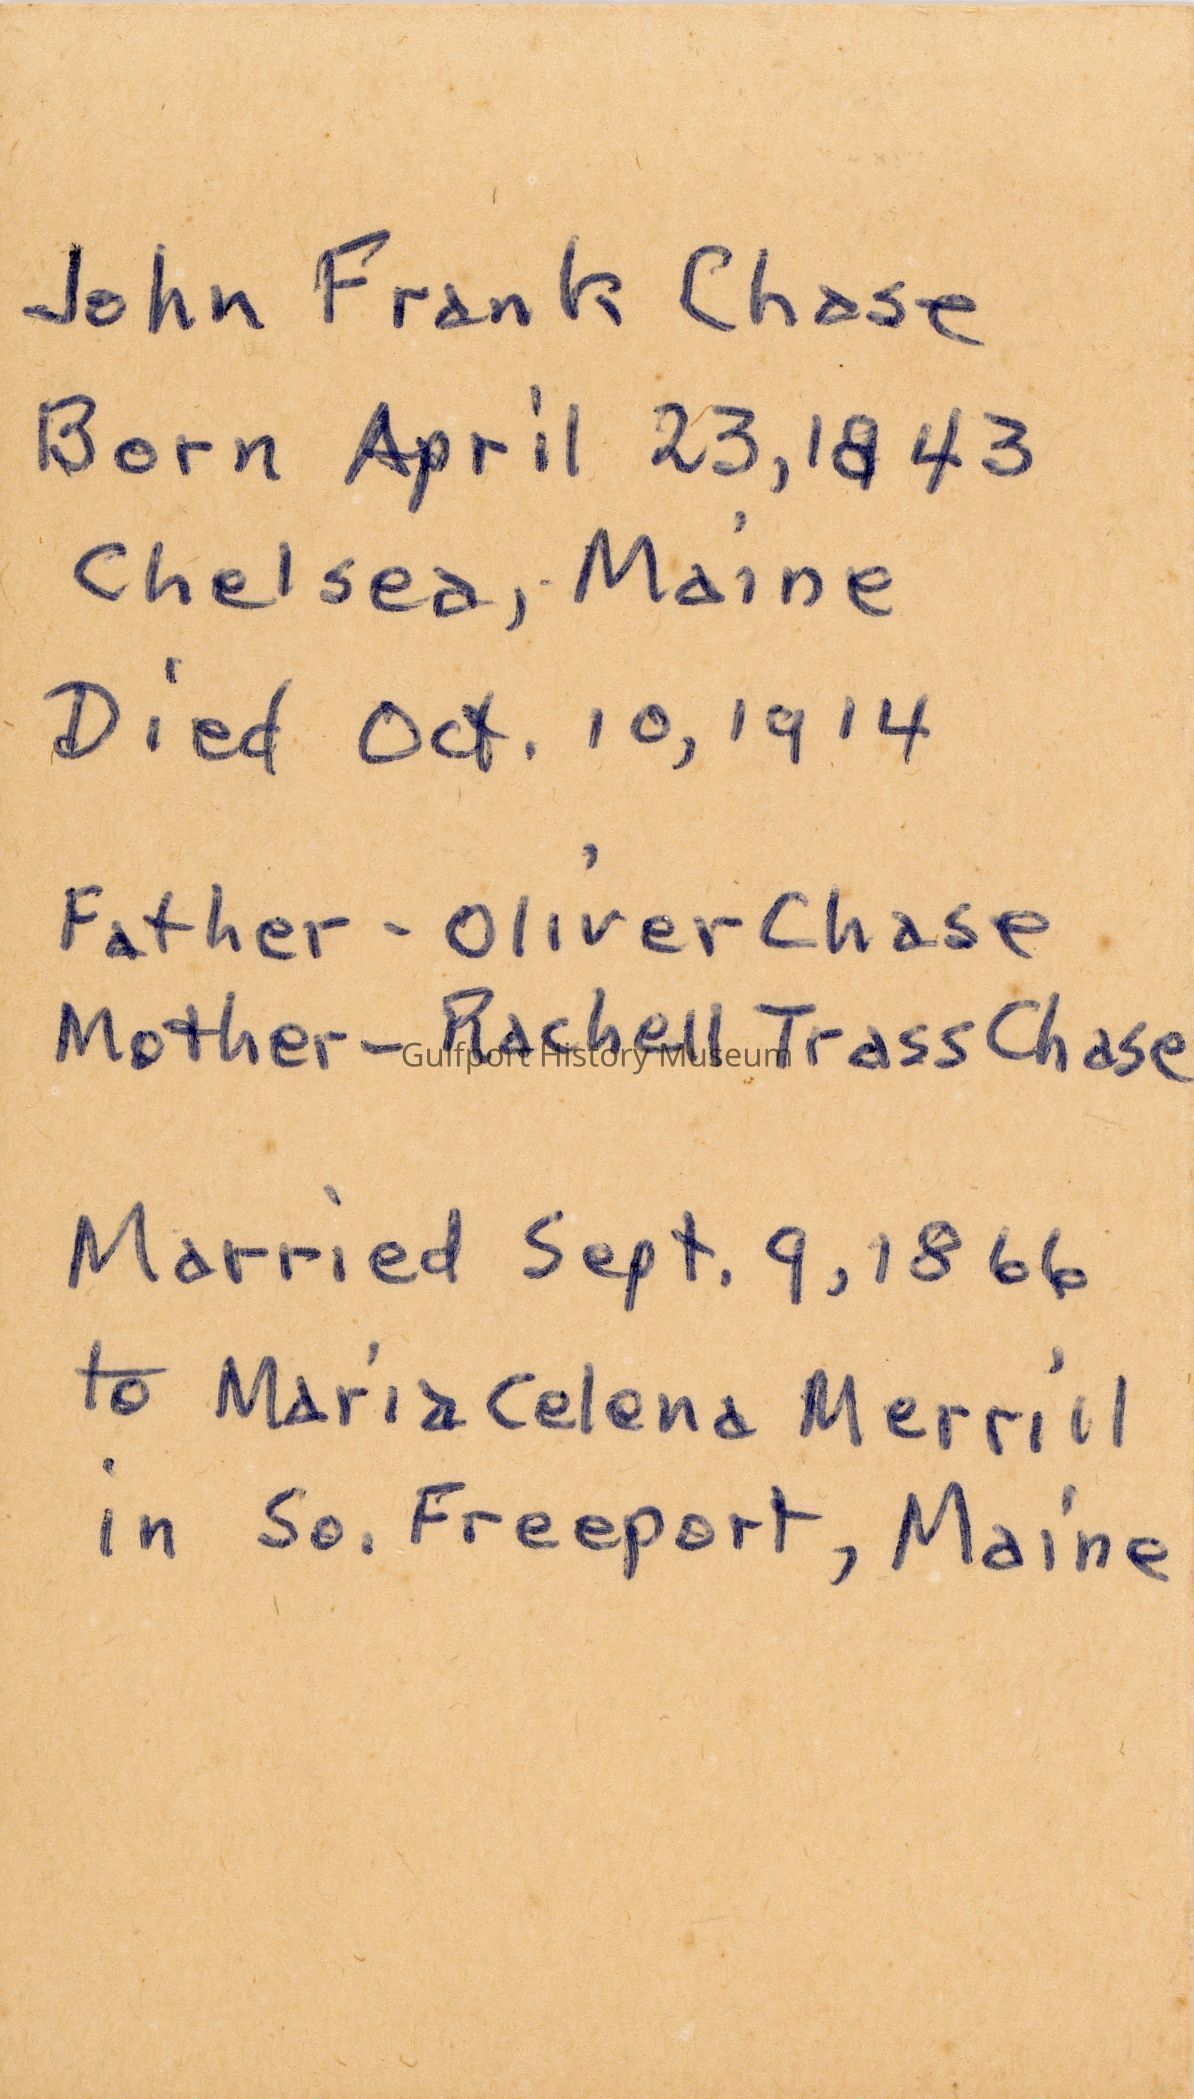 John Frank Chase
Born April 23, 1843
Chelsea, Maine
Died Oct. 10, 1914
Father - Oliver Chase
Mother - Rachell Trass Chase
Gulfport History Museum
Married Sept. 9, 1866
to Maria Celena Merrill
in So. Freeport, Maine